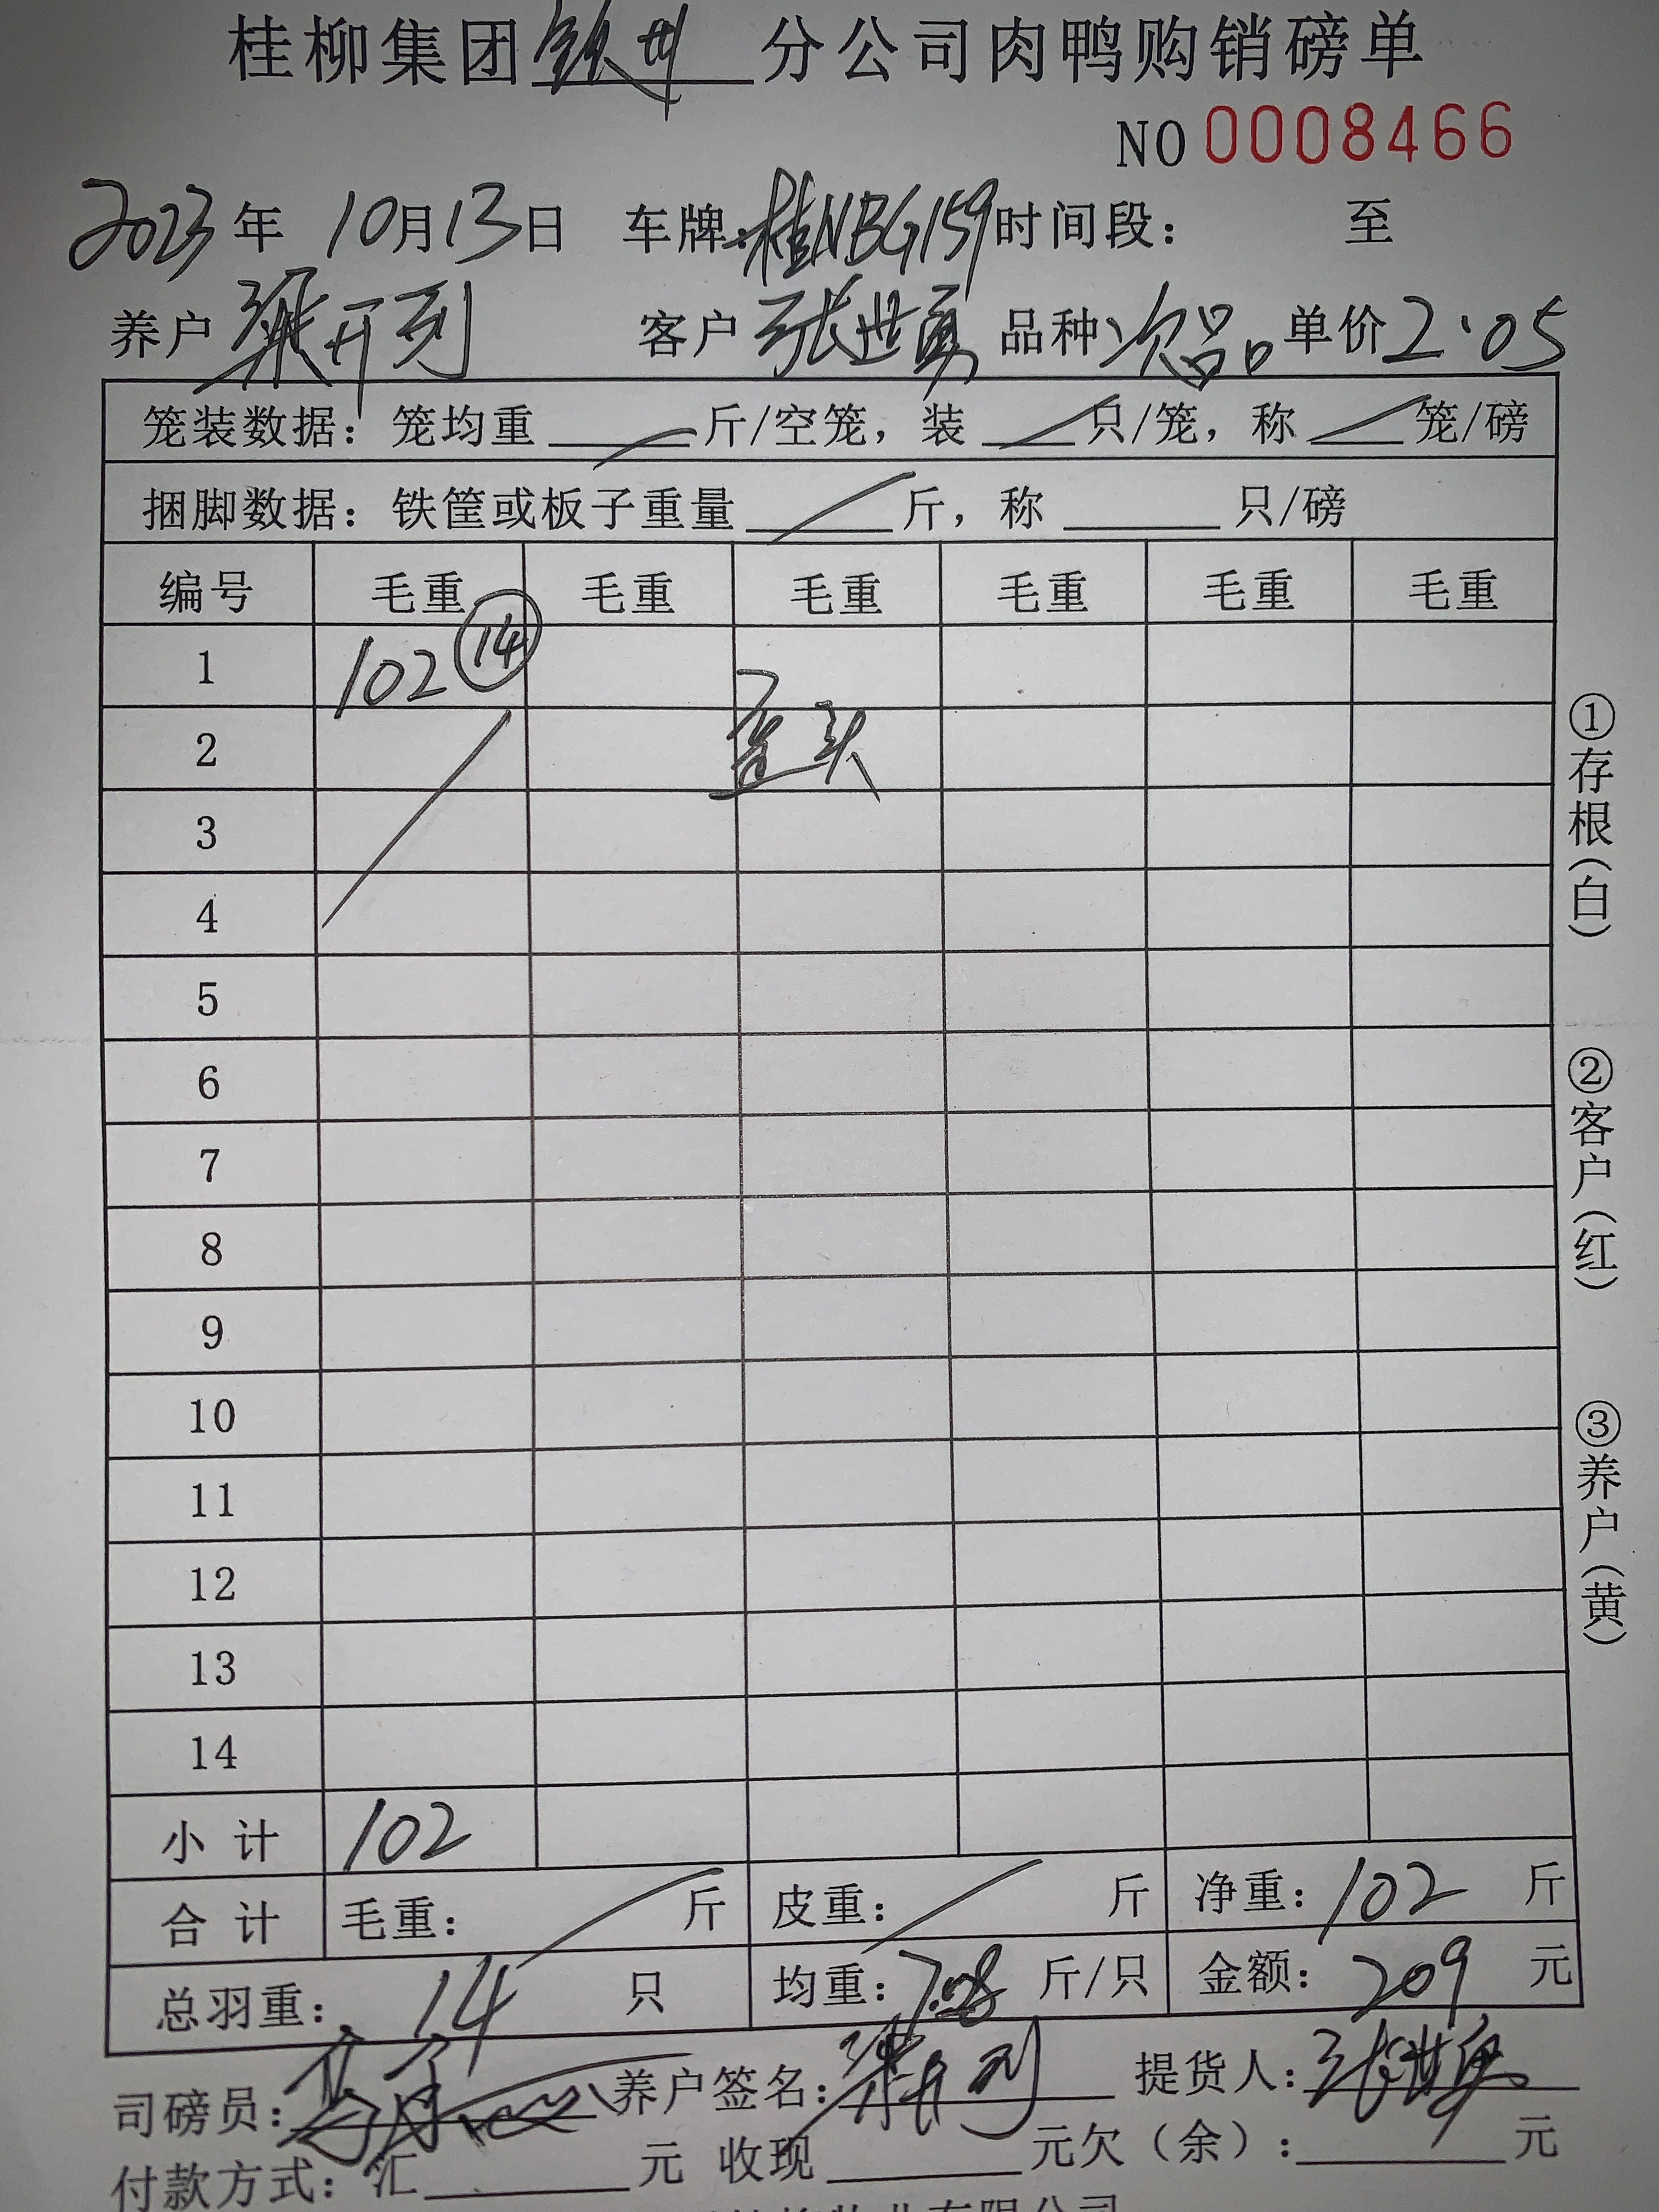 桂柳集团钦州分公司肉鸭购销磅单
NO 0008466
2023年 10月13日 车牌:桂NBG159时间段: 至
养户 梁开列 客户 张世勇 品种 次品 单价 2.05
笼装数据: 笼均重____斤/空笼, 装____只/笼, 称____笼/磅
捆脚数据: 铁筐或板子重量____斤, 称____只/磅
编号 毛重 毛重 毛重 毛重 毛重 毛重
1 102 ⑭
2 歪头
3
4
5
6
7
8
9
10
11
12
13
14
小 计 102
合 计 毛重: 斤 皮重: 斤 净重: 102 斤
总羽重: 14 只 均重: 7.28 斤/只 金额: 209 元
司磅员: 养户签名: 梁开列 提货人: 张世勇
付款方式: 汇____元 收现____元欠(余):____元
①存根(白)
②客户(红)
③养户(黄)